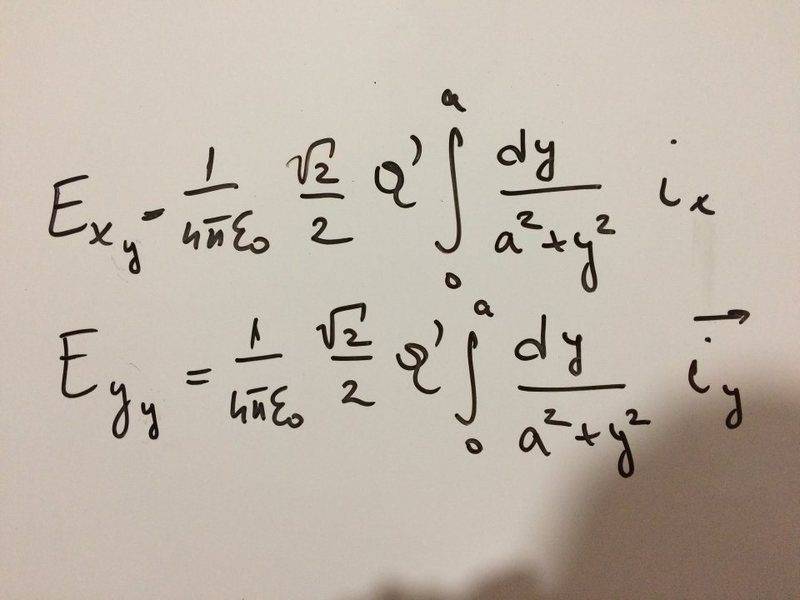 E_{x_y} = \frac{1}{4πε_0} \frac{\sqrt{2}}{2} Q' \int_0^a \frac{dy}{a^2+y^2} i_x
E_{y_y} = \frac{1}{4πε_0} \frac{\sqrt{2}}{2} Q' \int_0^a \frac{dy}{a^2+y^2} \vec{i_y}